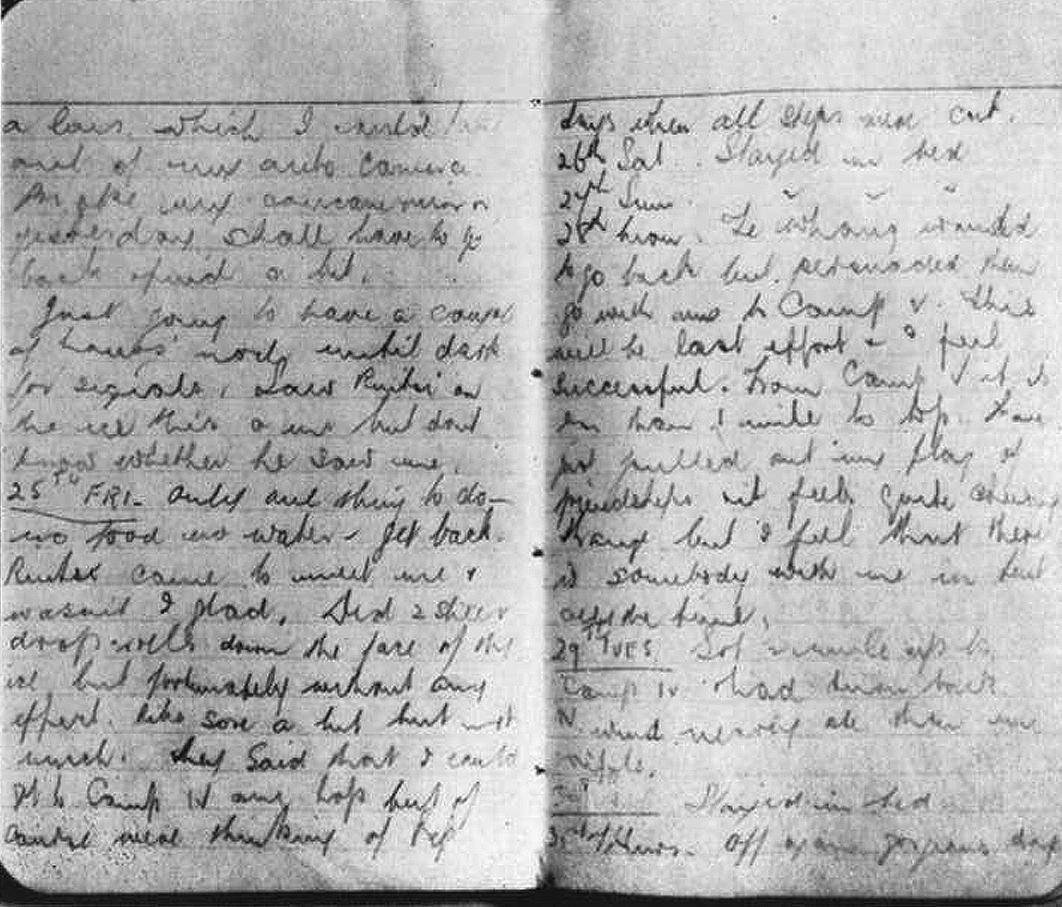 a lens which I could take
out of my auto camera
yesterday shall have to go
back & find a bit.
Just going to have a couple
of hours until dark
for signals, Saw Rinzi on
the ice this a.m. but dont
know whether he saw me.
25TH FRI. Only one thing to do —
no food no water - get back.
came to meet me &
wasnt I glad. Did 2 sheer
drops rolls down the face of the
ice but fortunately without any
effect. Ribs sore a bit but not
much. They said that I could
get to Camp IV any hops but of
course were thinking of
days when all steps were cut.
26th Sat. Stayed in bed
27th Sun. " " "
28th Mon. Tewhang wanted
to go back but persuaded them
go with me to Camp V. This
will be last effort & I feel
successful. From Camp V it is
less than 1 mile to top. Have
just pulled out my flag of
friendships & it feels quite
but I feel that there
is somebody with me in tent
all the time.
29TH TUES Set up to
Camp IV & had turn back
N. wind nearly
Stayed in bed
31st Thurs. Off again gorgeous day